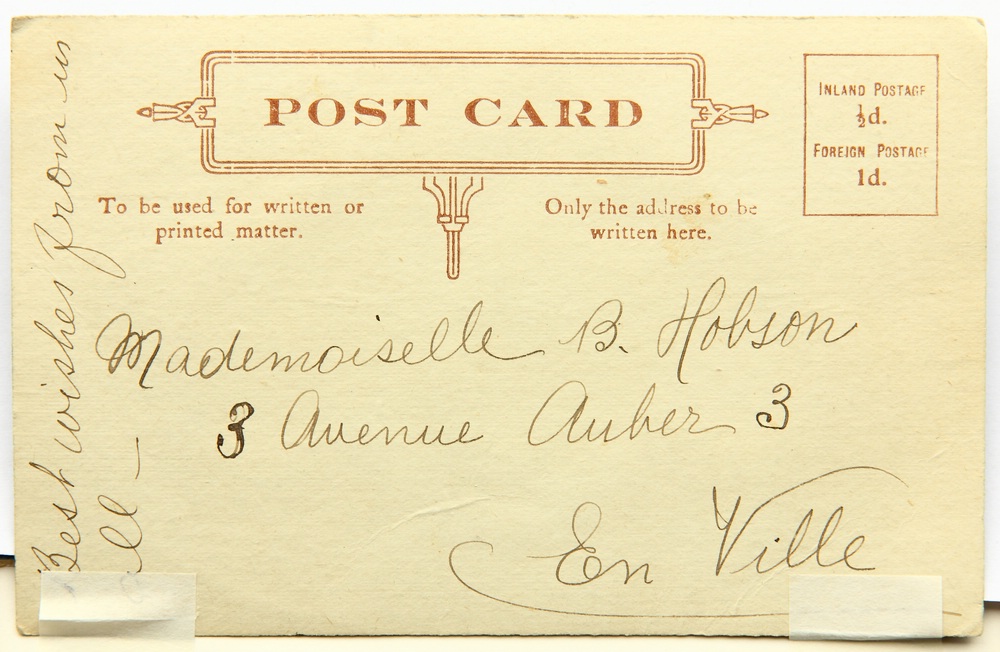 POST CARD
INLAND POSTAGE
½d.
FOREIGN POSTAGE
1d.
To be used for written or
printed matter.
Only the address to be
written here.
Mademoiselle B. Hobson
3 Avenue Auber 3
En Ville
Best wishes from us
all —